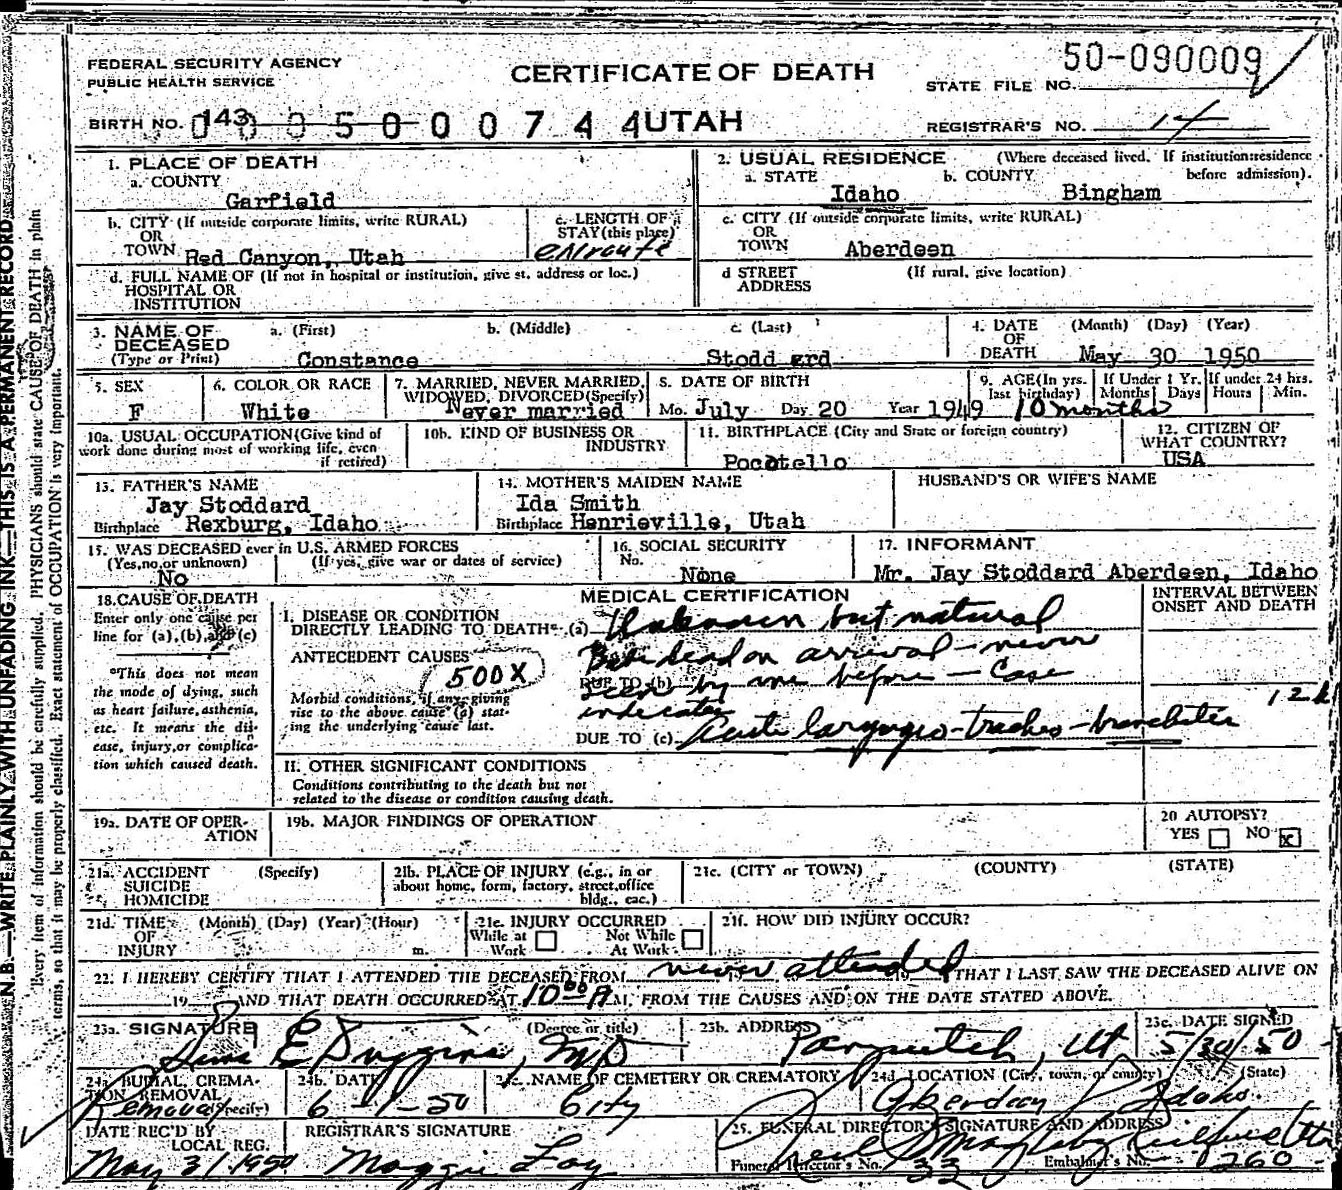 FEDERAL SECURITY AGENCY
PUBLIC HEALTH SERVICE
CERTIFICATE OF DEATH
50-090009
STATE FILE NO.
BIRTH NO. 143 0 0 5 0 0 0 7 4 4 UTAH
REGISTRAR'S NO. 14
1. PLACE OF DEATH
a. COUNTY
Garfield
2. USUAL RESIDENCE (Where deceased lived. If institution: residence before admission).
a. STATE b. COUNTY
Idaho Bingham
b. CITY (If outside corporate limits, write RURAL)
OR
TOWN Red Canyon, Utah
c. LENGTH OF
STAY (this place)
enroute
c. CITY (If outside corporate limits, write RURAL)
OR
TOWN Aberdeen
d. FULL NAME OF (If not in hospital or institution, give st. address or loc.)
HOSPITAL OR
INSTITUTION
d STREET (If rural, give location)
ADDRESS
3. NAME OF DECEASED
(Type or Print)
a. (First) b. (Middle) c. (Last)
Constance Stoddard
4. DATE OF DEATH (Month) (Day) (Year)
May 30 1950
5. SEX
F
6. COLOR OR RACE
White
7. MARRIED, NEVER MARRIED,
WIDOWED, DIVORCED (Specify)
Never married
8. DATE OF BIRTH
Mo. July Day 20 Year 1949
9. AGE (In yrs. last birthday)
If Under 1 Yr. Months Days
If under 24 hrs. Hours Min.
10 months
10a. USUAL OCCUPATION (Give kind of
work done during most of working life, even
if retired)
10b. KIND OF BUSINESS OR
INDUSTRY
11. BIRTHPLACE (City and State or foreign country)
Pocatello
12. CITIZEN OF
WHAT COUNTRY?
USA
13. FATHER'S NAME
Jay Stoddard
Birthplace Rexburg, Idaho
14. MOTHER'S MAIDEN NAME
Ida Smith
Birthplace Henrieville, Utah
HUSBAND'S OR WIFE'S NAME
15. WAS DECEASED ever in U.S. ARMED FORCES
(Yes, no, or unknown) (If yes, give war or dates of service)
No
16. SOCIAL SECURITY
No. None
17. INFORMANT
Mr. Jay Stoddard Aberdeen, Idaho
18. CAUSE OF DEATH
Enter only one cause per
line for (a), (b), and (c)
*This does not mean
the mode of dying, such
as heart failure, asthenia,
etc. It means the dis-
ease, injury, or complica-
tion which caused death.
MEDICAL CERTIFICATION
INTERVAL BETWEEN
ONSET AND DEATH
I. DISEASE OR CONDITION
DIRECTLY LEADING TO DEATH* (a) Unknown but natural
ANTECEDENT CAUSES 500X
dead on arrival - never
DUE TO (b)
seen by me before - Case
indicates
Morbid conditions, if any, giving
rise to the above cause (a) stat-
ing the underlying cause last.
DUE TO (c) Acute laryngo-tracheo-bronchitis
12 h
II. OTHER SIGNIFICANT CONDITIONS
Conditions contributing to the death but not
related to the disease or condition causing death.
19a. DATE OF OPER-
ATION
19b. MAJOR FINDINGS OF OPERATION
20 AUTOPSY?
YES NO x
21a. ACCIDENT (Specify)
SUICIDE
HOMICIDE
21b. PLACE OF INJURY (e.g., in or
about home, form, factory, street, office
bldg., eac.)
21c. (CITY or TOWN) (COUNTY) (STATE)
21d. TIME (Month) (Day) (Year) (Hour)
OF
INJURY m.
21e. INJURY OCCURRED
While at Work Not While At Work
21f. HOW DID INJURY OCCUR?
22. I HEREBY CERTIFY THAT I ATTENDED THE DECEASED FROM never attended 19 THAT I LAST SAW THE DECEASED ALIVE ON
19 AND THAT DEATH OCCURRED AT 10 00 A M, FROM THE CAUSES AND ON THE DATE STATED ABOVE.
23a. SIGNATURE (Degree or title)
E Duggins, MD
23b. ADDRESS
Panguitch, Ut
23c. DATE SIGNED
5/30/50
24a. BURIAL, CREMA-
TION REMOVAL (Specify)
Removal
24b. DATE
6-1-50
24c. NAME OF CEMETERY OR CREMATORY
City
24d. LOCATION (City, town, or county) (State)
Aberdeen Idaho.
DATE REC'D BY
LOCAL REG.
May 31 1950
REGISTRAR'S SIGNATURE
Maggie Foy
25. FUNERAL DIRECTOR'S SIGNATURE AND ADDRESS
Neil S Magleby Richfield Utah
Funeral Director's No. 133 Embalmer's No. 260
N.B.—WRITE PLAINLY WITH UNFADING INK—THIS IS A PERMANENT RECORD
Every item of information should be carefully supplied. PHYSICIANS should state CAUSE OF DEATH in plain
terms, so that it may be properly classified. Exact statement of OCCUPATION is very important.